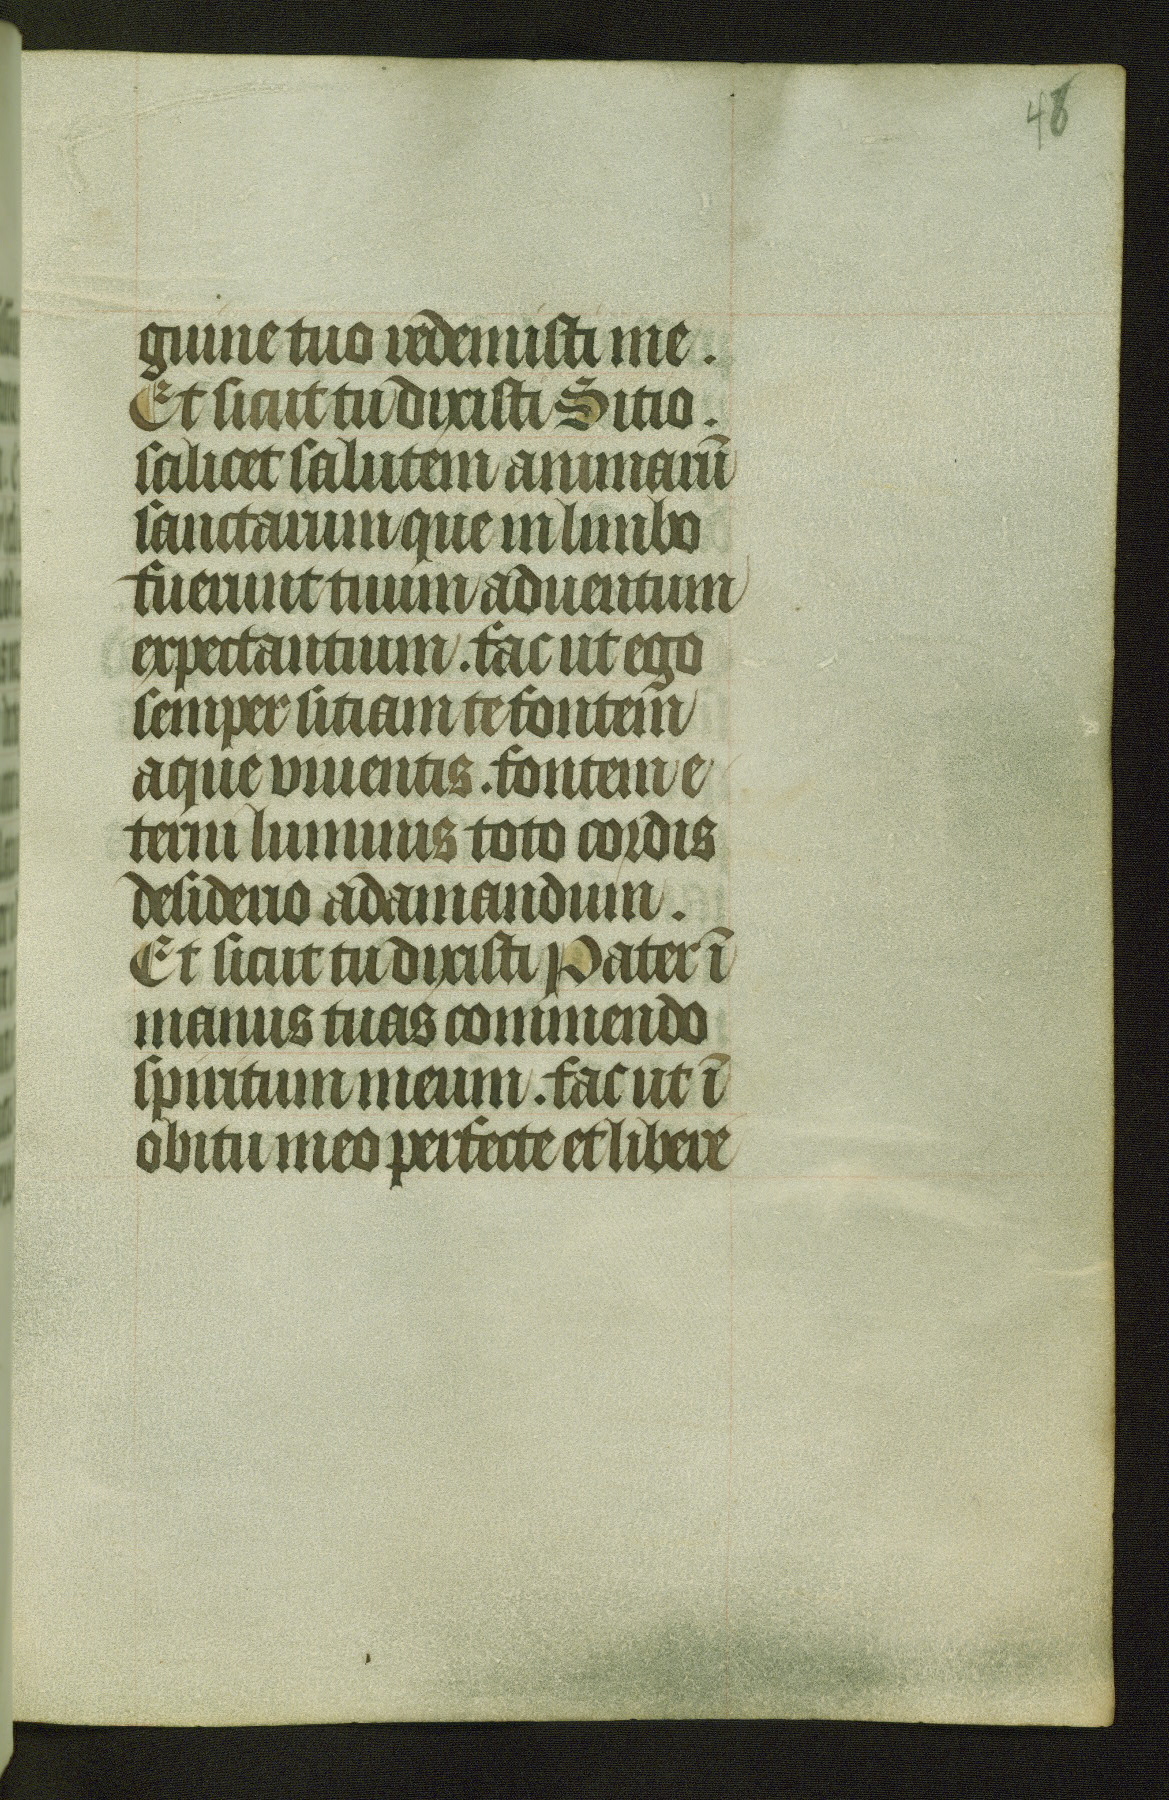 48
guine tuo redemisti me.
Et sicut tu dixisti Sitio.
scilicet salutem animarū
sanctarum que in limbo
fuerunt tuum aduentum
expectantium. fac ut ego
semper sitiam te fontem
aque viuentis. fontem e
terni luminis toto cordis
desiderio adamandum.
Et sicut tu dixisti Pater ī
manus tuas commendo
spiritum meum. fac ut ī
obitu meo perfecte et libere